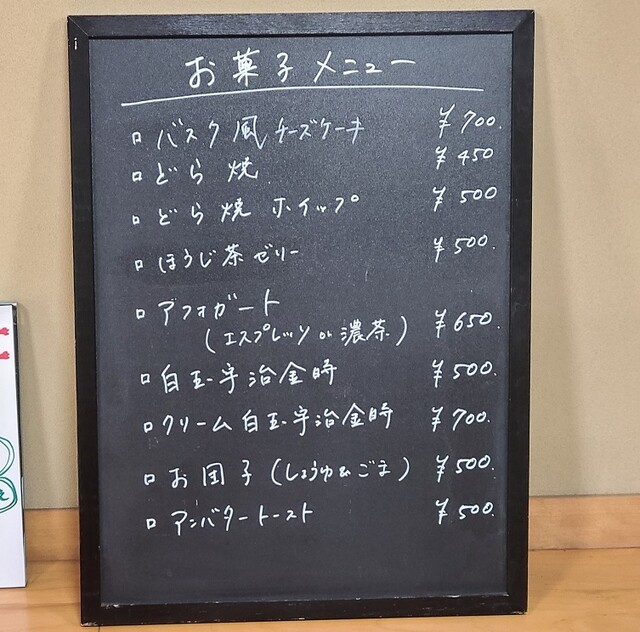 お菓子メニュー
バスク風チーズケーキ ¥700.
どら焼 ¥450
どら焼 ホイップ ¥500
ほうじ茶ゼリー ¥500.
アフォガート
(エスプレッソ or 濃茶) ¥650.
白玉宇治金時 ¥500.
クリーム白玉宇治金時 ¥700.
お団子 (しょうゆ&ごま) ¥500.
アンバタートースト ¥500.